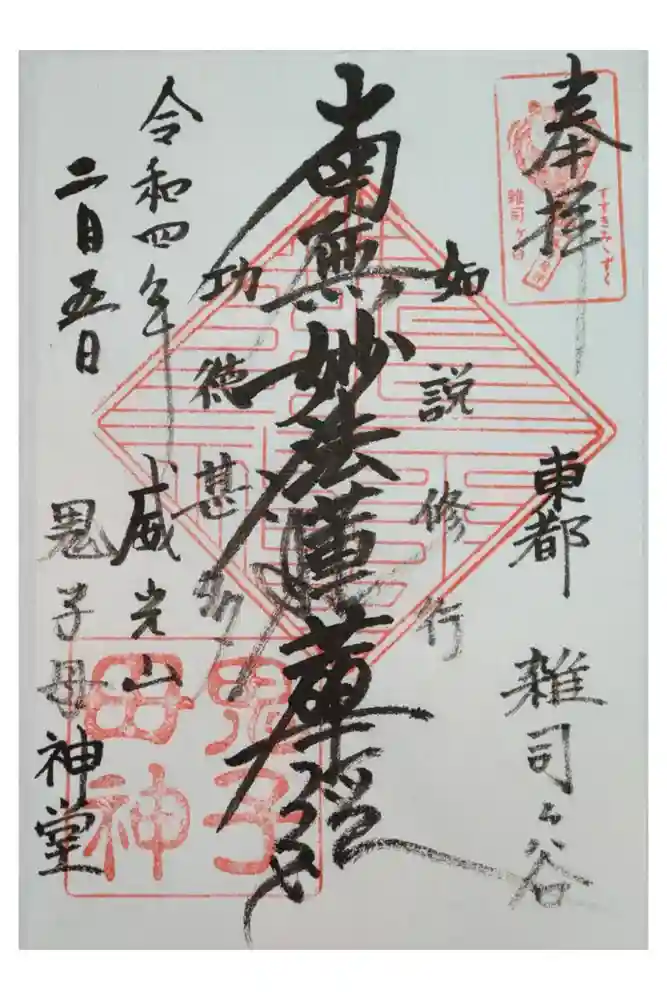 奉拝
すすきみゝずく
雑司ヶ谷
東都 雑司ヶ谷
如説修行
南無妙法蓮華経
功徳甚多
令和四年
二月五日
威光山
鬼子母神堂
鬼子
母神